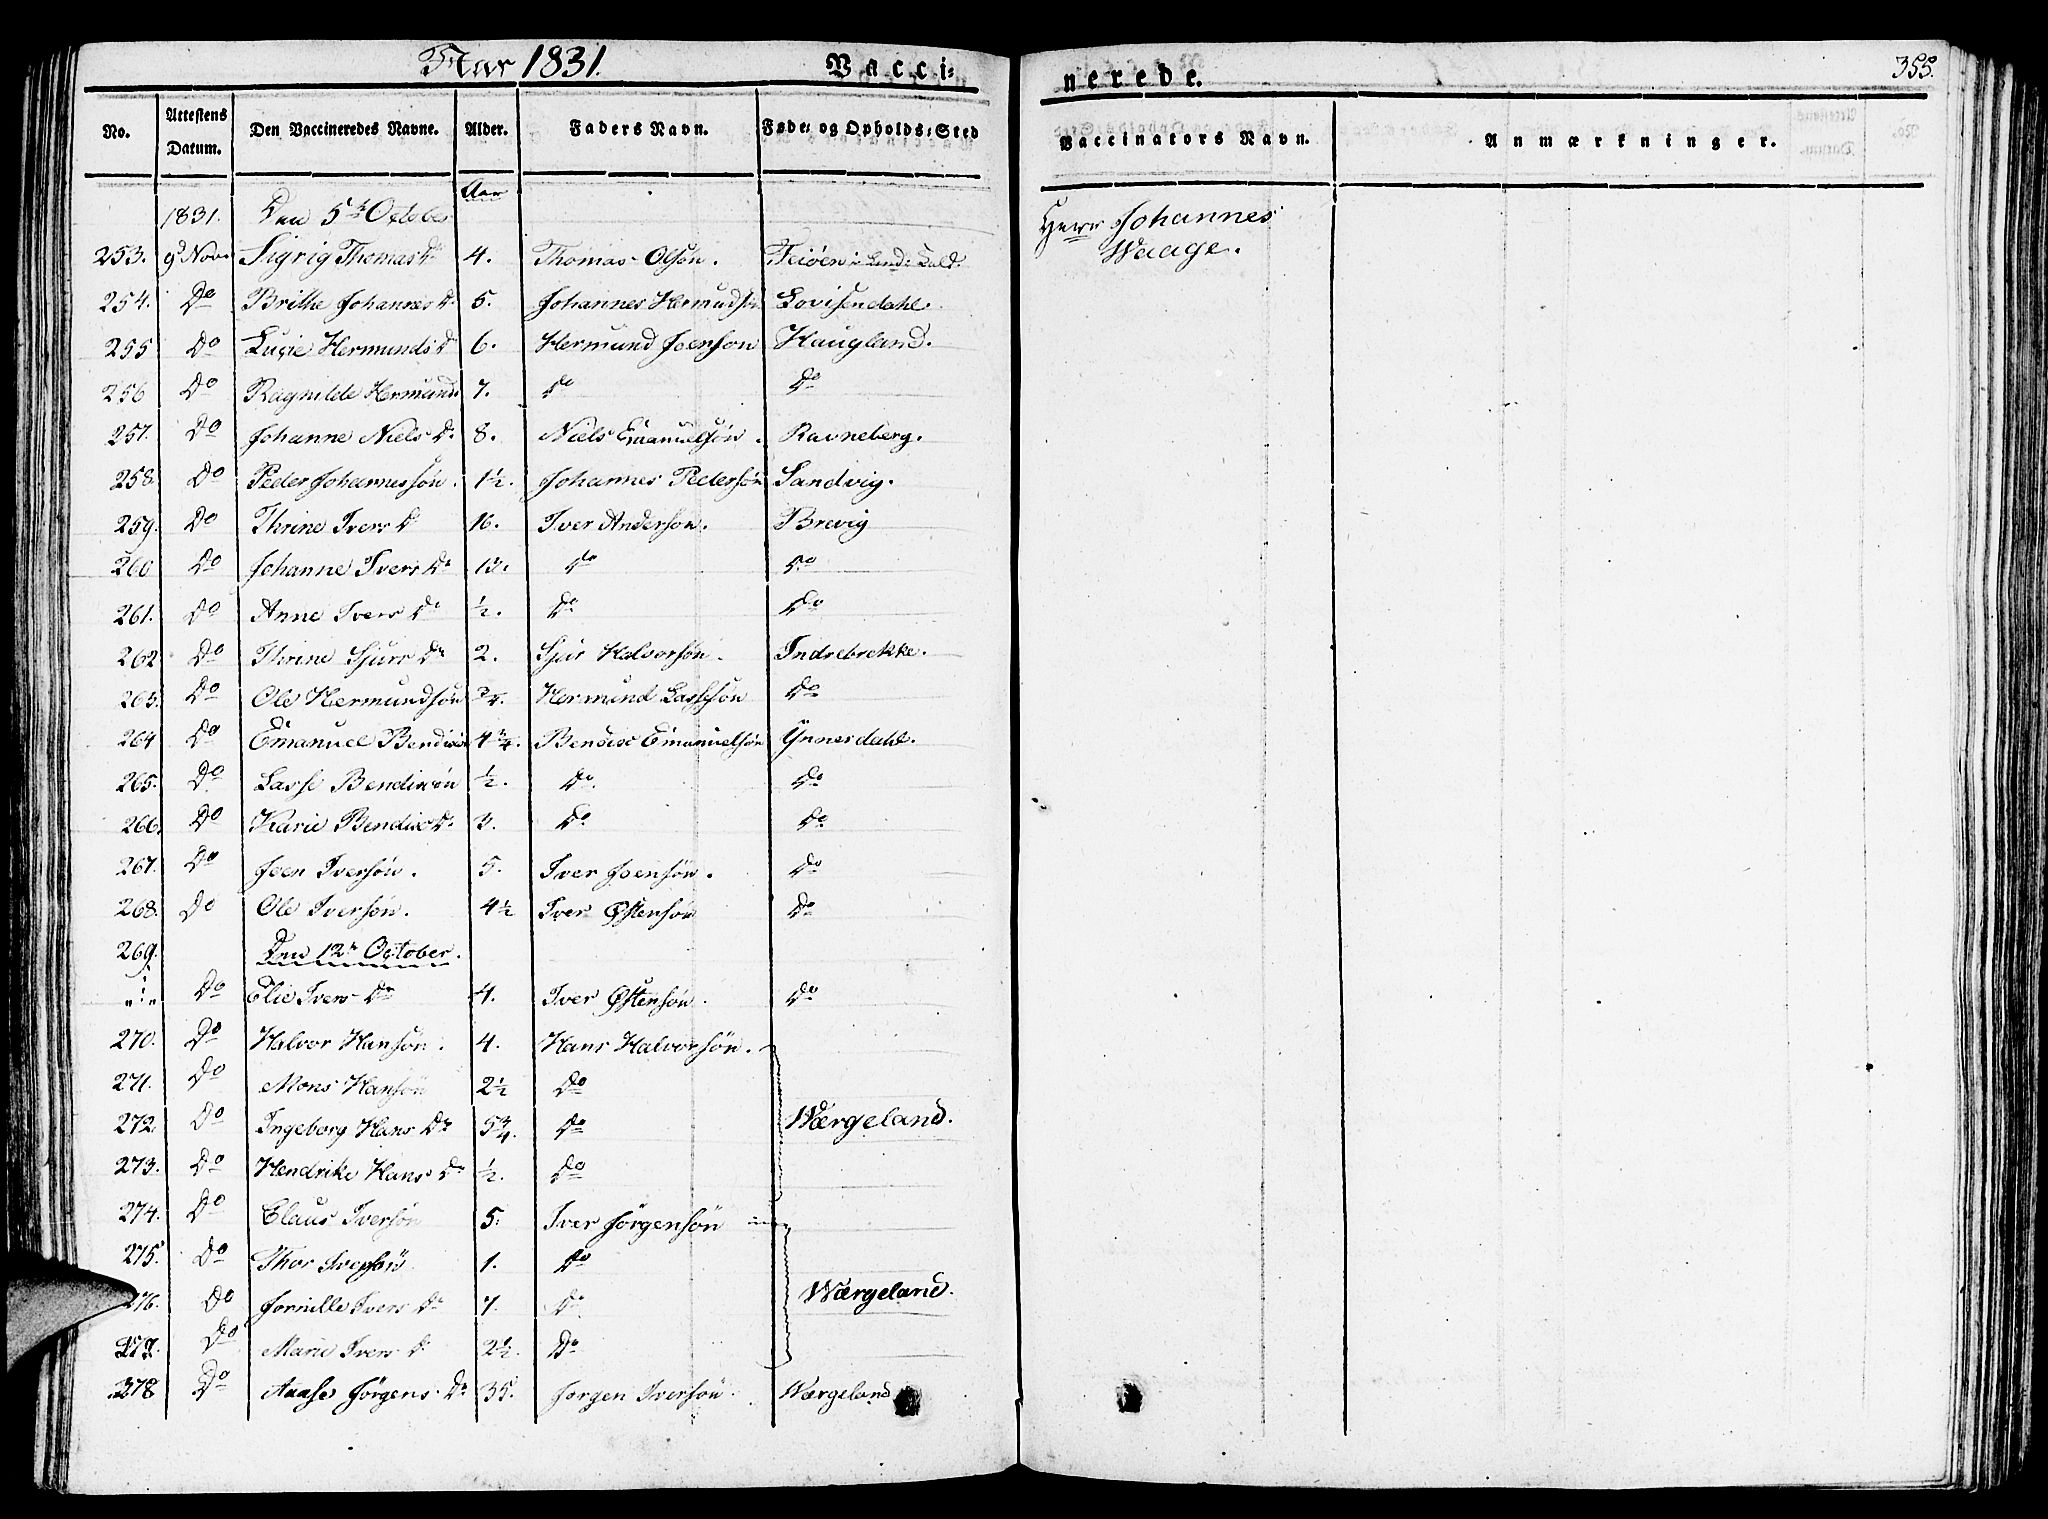 Aar 1831. Vacci= nerede. 355.
No. Attestens Datum. Den Vaccineredes Navne. Alder. Faders Navn. Føde= og Opholds=Sted Vaccinators Navn. Anmærkninger.
Aar
1831. Den 5te October Herr Johannes Waage.
253. 9 Nov. Sigrig Thomas Dr 4. Thomas Olsøn. Teiøen i
254. Do Brithe Johannes Dr 5. Johannes Hermundsøn Lovisendahl.
255 Do Lucie Hermunds Dr 6. Hermund Joensøn Haugland.
256 Do Ragnilde Hermunds 7. Do Do
257. Do Johanne Niels Dr 8. Niels Emanuelsøn. Ravneberg.
258. Do Peder Johannessøn. 1½. Johannes Pedersøn Sandvig.
259. Do Thrine Ivers Dr 16. Iver Andersøn. Brevig
260 Do Johanne Ivers Dr 13. Do Do
261. Do Anne Ivers Dr ½. Do Do
262 Do Thrine Sjurs Dr 2. Sjur Halvorsøn. Indrebrekke.
263. Do Ole Hermundsøn ¾. Hermund Lassesøn Do
264 Do Emanuel Bendixs 4¾. Bendix Emanuelsøn Ynnesdahl.
265. Do Lasse Bendixsøn ½. Do Do
266. Do Karie Bendix Dr 3. Do Do
267. Do Joen Iversøn. 5. Iver Joensøn. Do
268. Do Ole Iversøn. 4½ Iver Østensøn Do
269. Den 12te October.
Do Elie Ivers Dr 4. Iver Østensøn. Do
270. Do Halvor Hansøn. 4. Hans Halvorsøn.
271. Do Mons Hansøn 2½ Do
272. Do Ingeborg Hans Dr 5¾. Do Wærgeland.
273. Do Hendrike Hans Dr ½. Do
274. Do Claus Iversøn 5. Iver Jørgensøn
275. Do Thor Iversøn 1. Do
276. Do Jornille Ivers Dr 7. Do Wærgeland.
277. Do Marie Ivers Dr 2½. Do
278 Do Aase Jørgens Dr 35. Jørgen Iversøn. Wærgeland